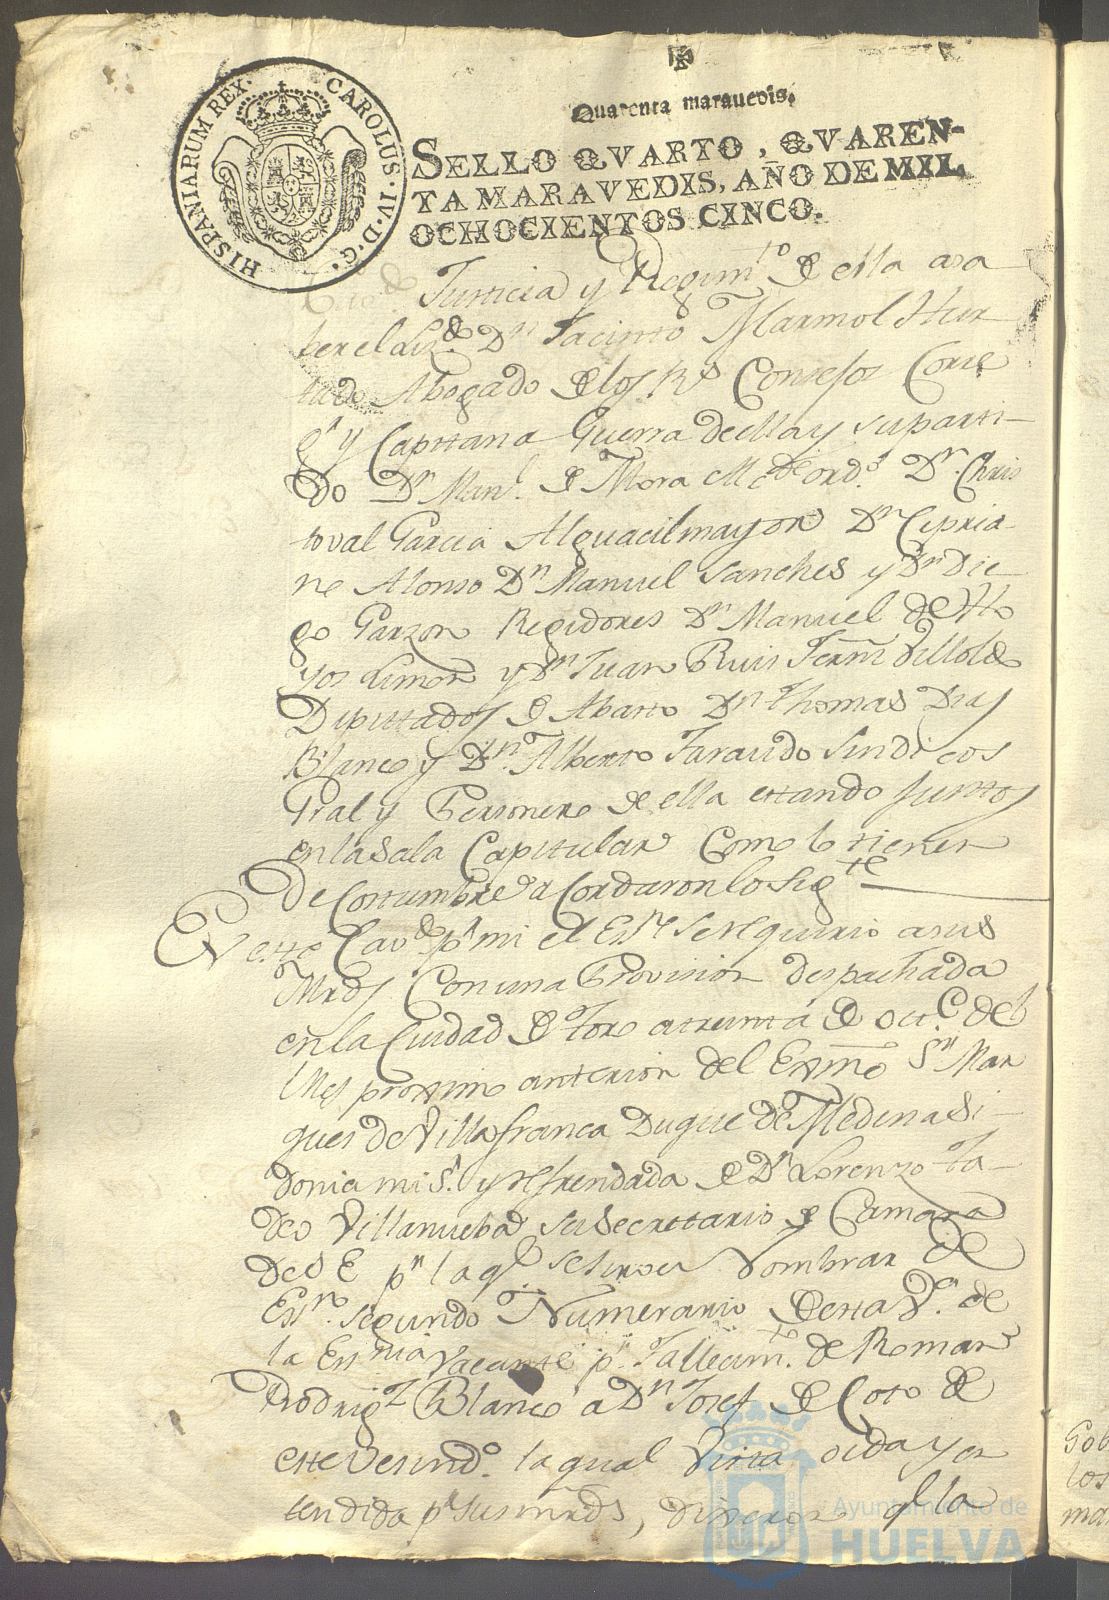 HISPANIARUM REX. CAROLUS. IV. D. G.
Quarenta marauedis.
SELLO QVARTO, QVAREN-
TA MARAVEDIS, AÑO DE MIL
OCHOCIENTOS CINCO.
Justicia y Regim.to de ella asa
ber el Liz.do Dn Jacinto Marmol Hur
tado Abogado de los Rs Consejos Corre
g.r y Capitan a Guerra de ella y su parti-
do Dn Man.l de Mora Alc.de ord.o Dn. Chris
toval Garcia Alguacil mayor Dn Cipria-
no Alonso Dn Manuel Sanches y Dn Die
go Garzon Regidores Dn Manuel de Ho
yos Limon y Dn Juan Ruis Fern
Diputtados de Abasto Dn Thomas Dias
Blanco y Dn. Alberto Jaraudo Sindicos
Gral y Personero de ella estando juntos
en la Sala Capitular como lo tienen
de costumbre acordaron lo sig.te
En este Cav.do pr mi el Esno se requirio a sus
Mrds con una Provision despachada
en la Ciudad de Toro a treinta de Oct.e del
Mes proximo anterior del Exmo Sn Mar
ques de Villafranca Duque de Medina Si-
donia mi Sr. y refrendada de Dn Lorenzo Ta-
deo Villanueba su Secrettario de Camara
de S E pr la ql se sirve nombrar de
Esno. segundo Numerario de esta Va. de
la Esnnia vacante pr. fallecim.to de Roman
Rodrigz Blanco a Dn Josef de Coto de
este Vesind.o la qual vista oida y en
tendida pr sus mrds, dixeron q la
Gob
los
ma
Ayuntamiento de
HUELVA